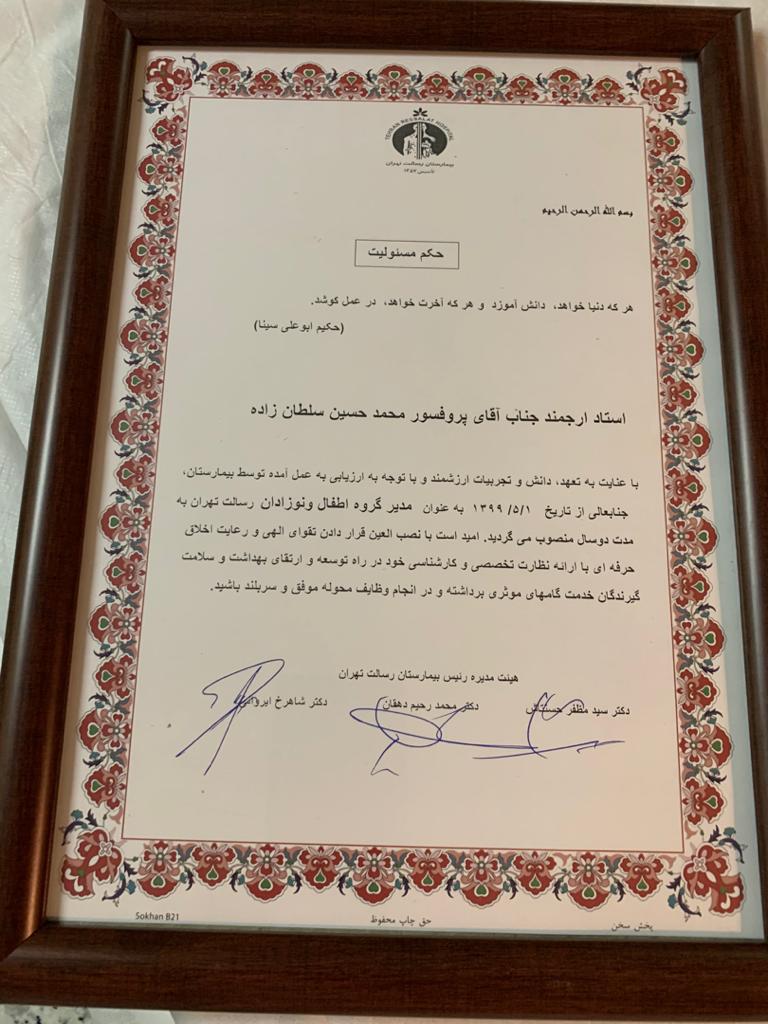 TEHRAN RESSALAT HOSPITAL
بیمارستان رسالت تهران
تاسیس ۱۳۵۲
بسم الله الرحمن الرحیم
حکم مسئولیت
هر که دنیا خواهد، دانش آموزد و هر که آخرت خواهد، در عمل کوشد.
(حکیم ابوعلی سینا)
استاد ارجمند جناب آقای پروفسور محمد حسین سلطان زاده
با عنایت به تعهد، دانش و تجربیات ارزشمند و با توجه به ارزیابی به عمل آمده توسط بیمارستان،
جنابعالی از تاریخ ۱۳۹۹/۵/۱ به عنوان مدیر گروه اطفال ونوزادان رسالت تهران به
مدت دوسال منصوب می گردید. امید است با نصب العین قرار دادن تقوای الهی و رعایت اخلاق
حرفه ای با ارائه نظارت تخصصی و کارشناسی خود در راه توسعه و ارتقای بهداشت و سلامت
گیرندگان خدمت گامهای موثری برداشته و در انجام وظایف محوله موفق و سربلند باشید.
هیئت مدیره رئیس بیمارستان رسالت تهران
دکتر سید مظفر دکتر محمد رحیم دهقان دکتر شاهرخ
Sokhan B21 حق چاپ محفوظ پخش سخن